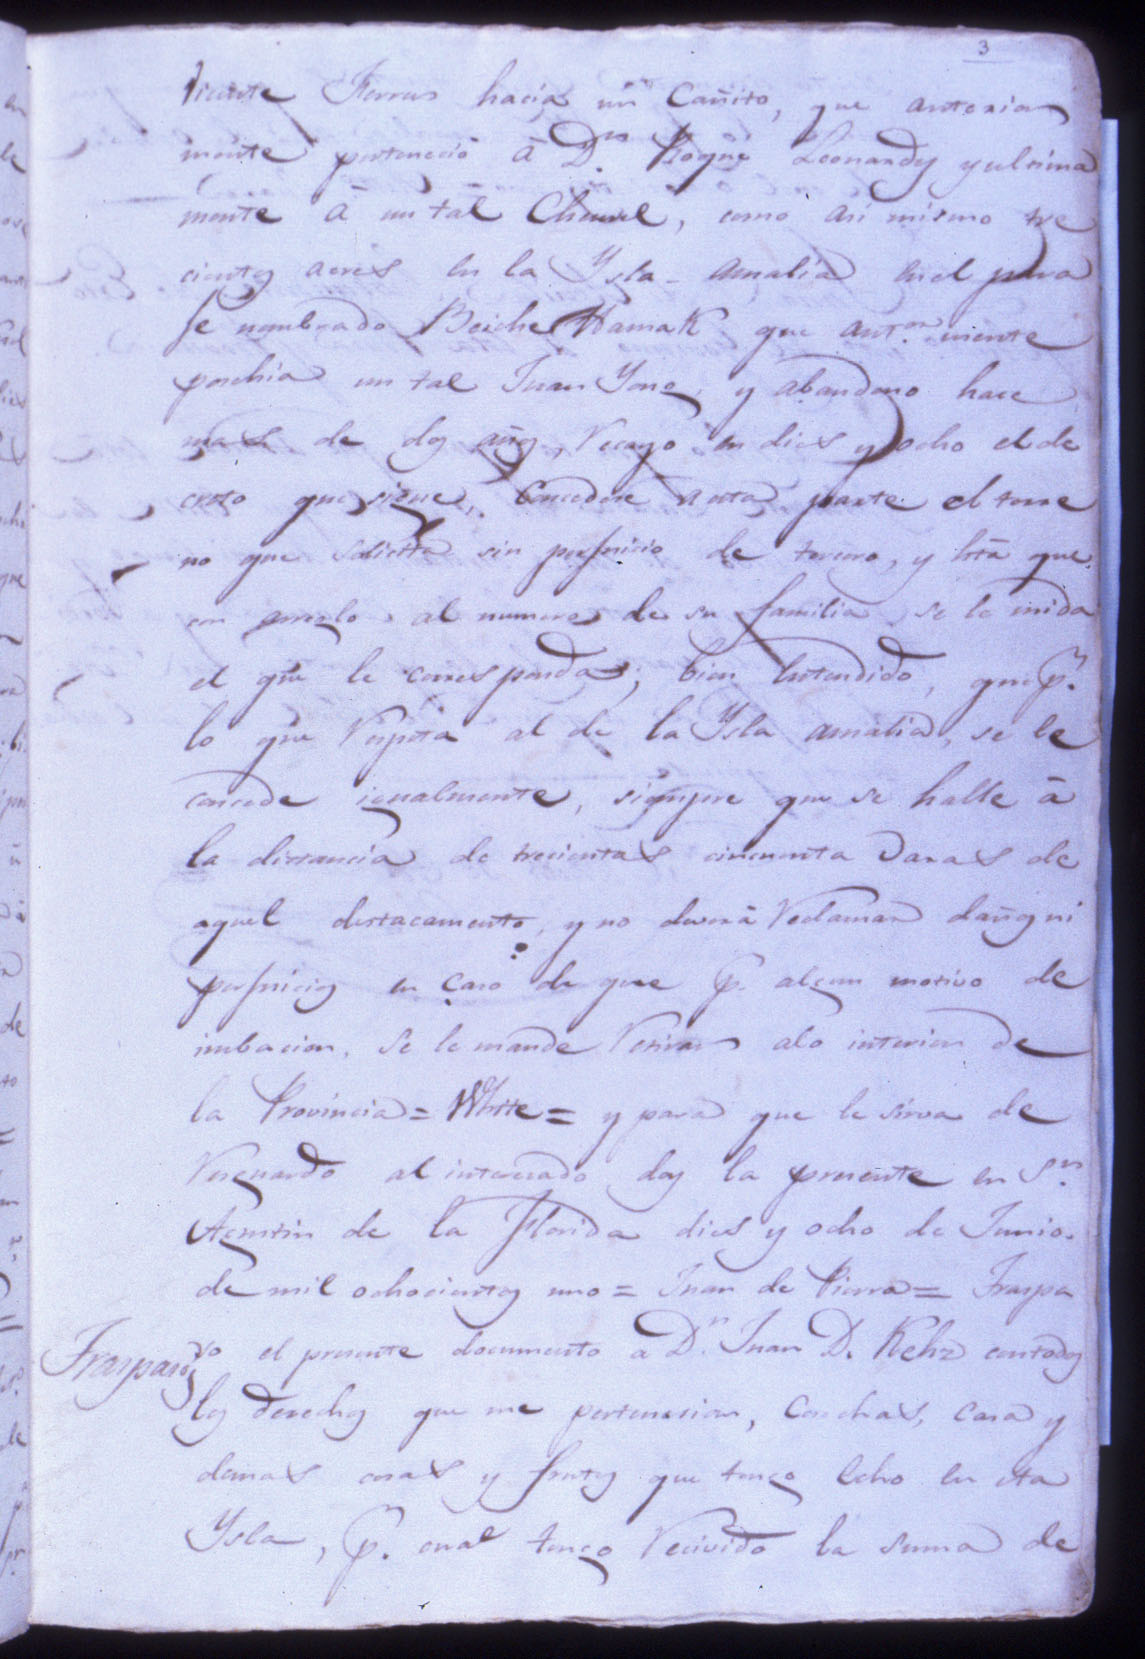 3
Vicente Ferrus hacia un Cañito, que anterior
mente perteneció á Dn Roque Leonardy y ultima
mente á un tal Chevel, como asi mismo tre
cientos acres en la Ysla Amalia en el para
je nombrado Beiche Hamak que antor.mente
poschia un tal Juan Yong, y abandono hace
mas de dos años, Recayo en dies y ocho el de
creto que sigue, Concedese a esta parte el terre
no que solicita sin perjuicio de tercero, y hta que
con arreglo al numero de su familia se le mida
el que le corresponda; bien entendido, que p.
lo que Respeta al de la Ysla Amalia, se le
concede igualmente, siempre que se halle á
la distancia de trecientas cincuenta varas de
aquel destacamento, y no deverá Reclamar daños ni
perjuicios en caso de que p. algun motivo de
imbacion, se le mande Retirar alo interior de
la Provincia = White = y para que le sirva de
Resguardo al interesado doy la presente en Sn.
Agustin de la Florida dies y ocho de Junio.
de mil ochocientos uno = Juan de Pierra = Traspa
Traspaso
so el presente documento a Dn. Juan D. Kehr con todos
los derechos que me pertenesian, Cosechas, casa y
demas cosas y frutos que tengo echo en esta
Ysla, p. cual tengo Recivido la suma de